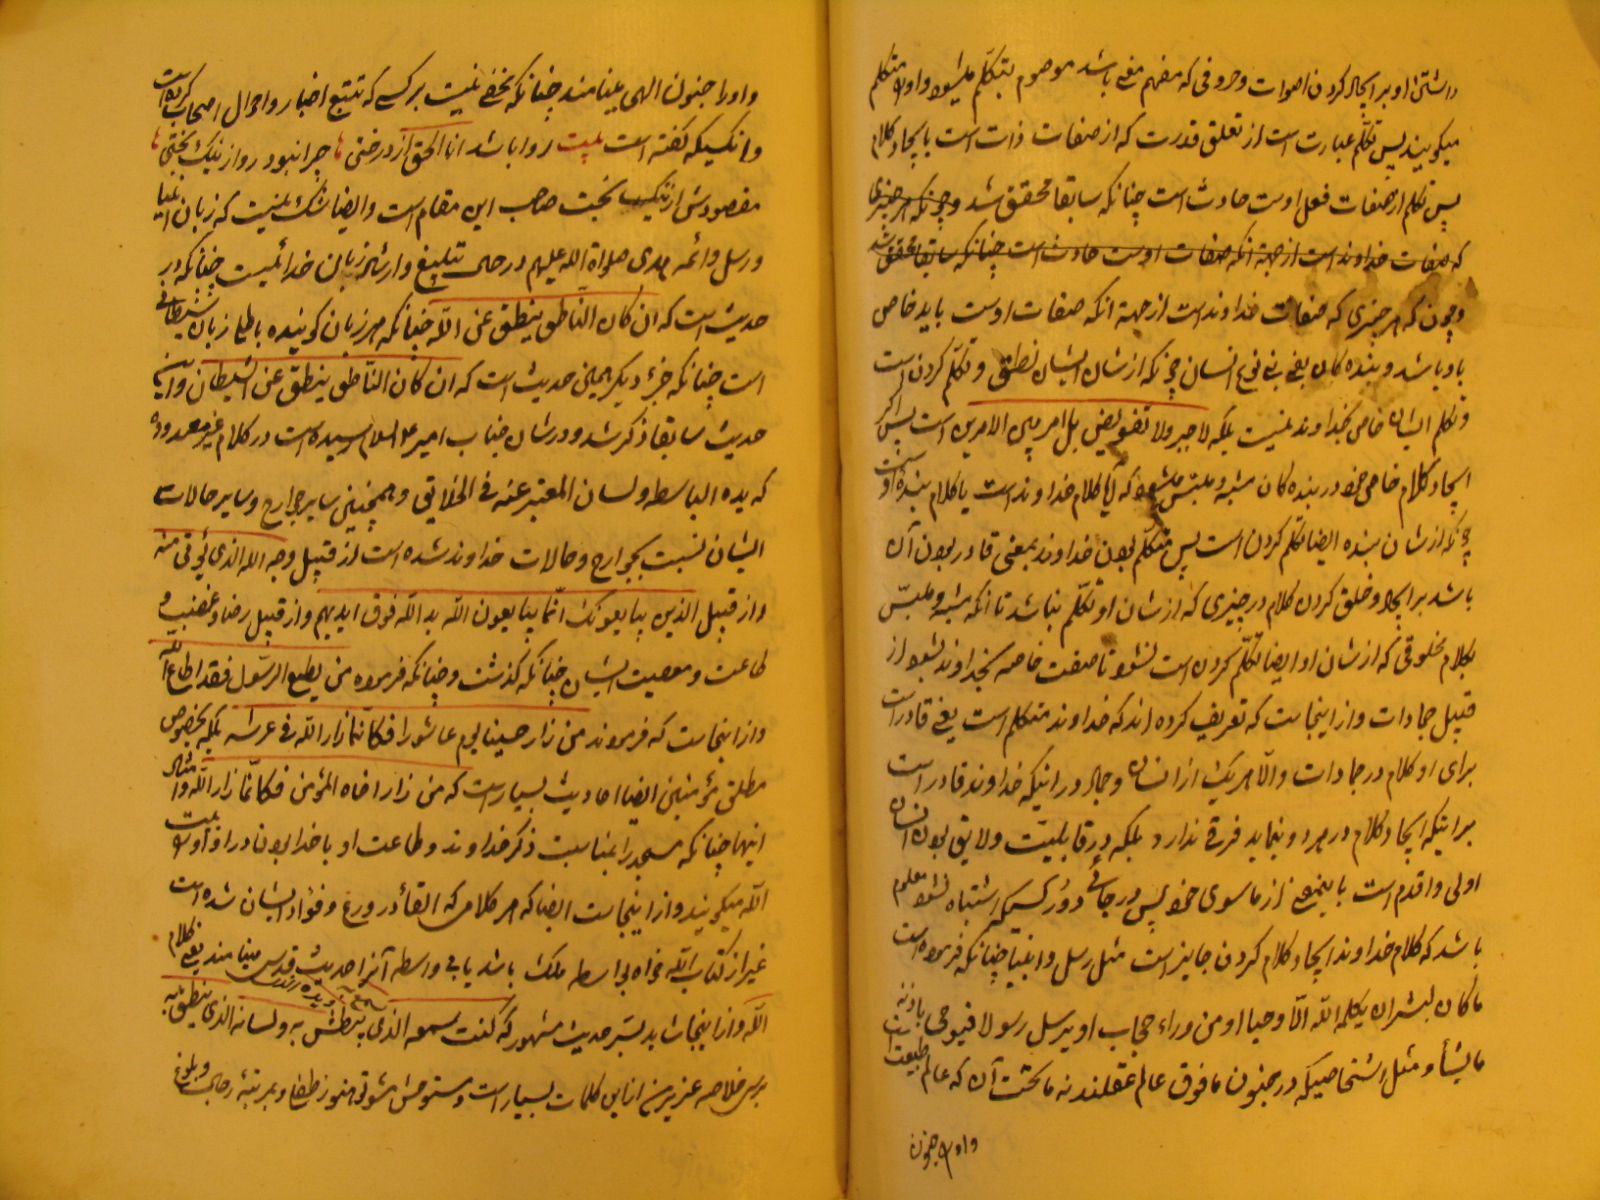 داشتن او بر ایجاد کردن اصوات و حروفی که مفهم معنی باشد موصوم بتکلّم میشود و او را متکلم
میکویند پس تکلّم عبارت است از تعلق قدرت که از صفات ذات است بایجاد کلام
پس تکلم از صفات فعل اوست حادث است چنانکه سابقا محقق شد و چونکه هر چیزی
که صفات خداوند است از جهة انکه صفات اوست حادث است چنانکه سابقا محقق شد
و چون که هر چیزی که صفات خداوند است از جهة انکه صفات اوست باید خاص
باو باشد و بنده کان یعنی بنی نوع انسان چونکه از شان ایشان نطق و تکلّم کردن است
و تکلم ایشان خاص بخداوند نیست بلکه لا جبر ولا تفویض بل امر بین الامرین است پس اکر
ایجاد کلام خاص خود در بنده کان مشبه و ملتبس میشود که آیا کلام خداوند است یا کلام بنده اوست
چونکه از شان بنده ایضا تکلّم کردن است پس متکلّم بودن خداوند بمعنی قادر بودن آن
باشد بر ایجاد و خلق کردن کلام در چیزی که از شان او تکلّم نباشد تا انکه مشبه و ملتبس
بکلام مخلوقی که از شان او ایضا تکلّم کردن است نشود تا صفت خاصه بخداوند بشود از
قبیل جمادات و از اینجاست که تعریف کرده اند که خداوند متکلم است یعنی قادر است
برای او کلام در جمادات والّا هر یک از انسان و جماد در اینکه خداوند قادر است
بر اینکه ایجاد کلام در هر دو بنماید فرقی ندارد بلکه در قابلیّت ولایق بودن انسان
اولی و اقدم است باینمعنی از ماسوی خود پس در جائی و در کسیکه اشتباه نشود معلوم
باشد که کلام خداوند ایجاد کلام کردن جایز است مثل رسل و انبیا چنانکه فرموده است
ما کان لبشر ان یکلمه الله الّا وحیا او من وراء حجاب او یرسل رسولا فیوحی باذنه
ما یشاء و مثل اشخاصیکه در جنون ما فوق عالم عقلند نه ما تحت آن که عالم طبیعت است
و او را جنون
و او را جنون الهی مینامند چنانکه مخفی نیست بر کسی که تتبع اخبار و احوال اصحاب کرده است
و انکسیکه کفته است بیت روا باشد انا الحق از درختی ها چرا نبود روا از نیک بختی ها
مقصودش از نیک بخت صاحب این مقام است و ایضا شک نیست که زبان انبیا
و رسل و ائمه هدی صلواة الله علیهم در حال تبلیغ و ارشاد زبان خدائیست چنانکه در
حدیث است که ان کان النّاطق ینطق عن اللّه چنانکه هر زبان کوینده باطل زبان شیطانی
است چنانکه جزء دیکر همین حدیث است که ان کان النّاطق ینطق عن الشیطان و این
حدیث سابقا ذکر شد و در شان جناب امیر علیه السلام رسیده است در کلام غیر معدوده
که یده الباسطه ولسان المعتبر عنه فی الخلایق و همچنین سایر جوارح و سایر حالات
ایشان نسبت بجوارح و حالات خداوند شده است از قبیل وجه الله الذی یؤتی منه
و از قبیل الذین یبایعونک انّما یبایعون اللّه ید اللّه فوق ایدیهم و از قبیل رضا و غضب و
طاعت و معصیت ایشان چنانکه کذشت و چنانکه فرموده من یطیع الرسول فقد اطاع الله
و از اینجاست که فرمودند من زار حسینا یوم عاشورا فکانّما زار اللّه فی عرشه بلکه بخصوص
مطلق مؤمنین ایضا احادیث بسیار است که من زار اخاه المؤمن فکانّما زار اللّه و امثال
اینها چنانکه مسجد را بمناسبت ذکر خداوند و طاعت او با خدا بودن در او او را بیت
اللّه میکویند و از اینجاست ایضا که هر کلامی که القاء در ورع و فؤاد ایشان شده است
غیر از کتاب اللّه خواه بواسطه ملک باشد یا بی واسطه آنرا حدیث قدسی مینامند یعنی کلام
اللّه و از اینجاست حدیث مشهور که کنت سمعه الذی یسمع به ویده الذی یبطش به ولسانه الذی ینطق به
خلاصه عزیز من از این کلمات بسیار است و مستوحش مشو تو هنوز طفل و بمرتبه رجال و بلوغ